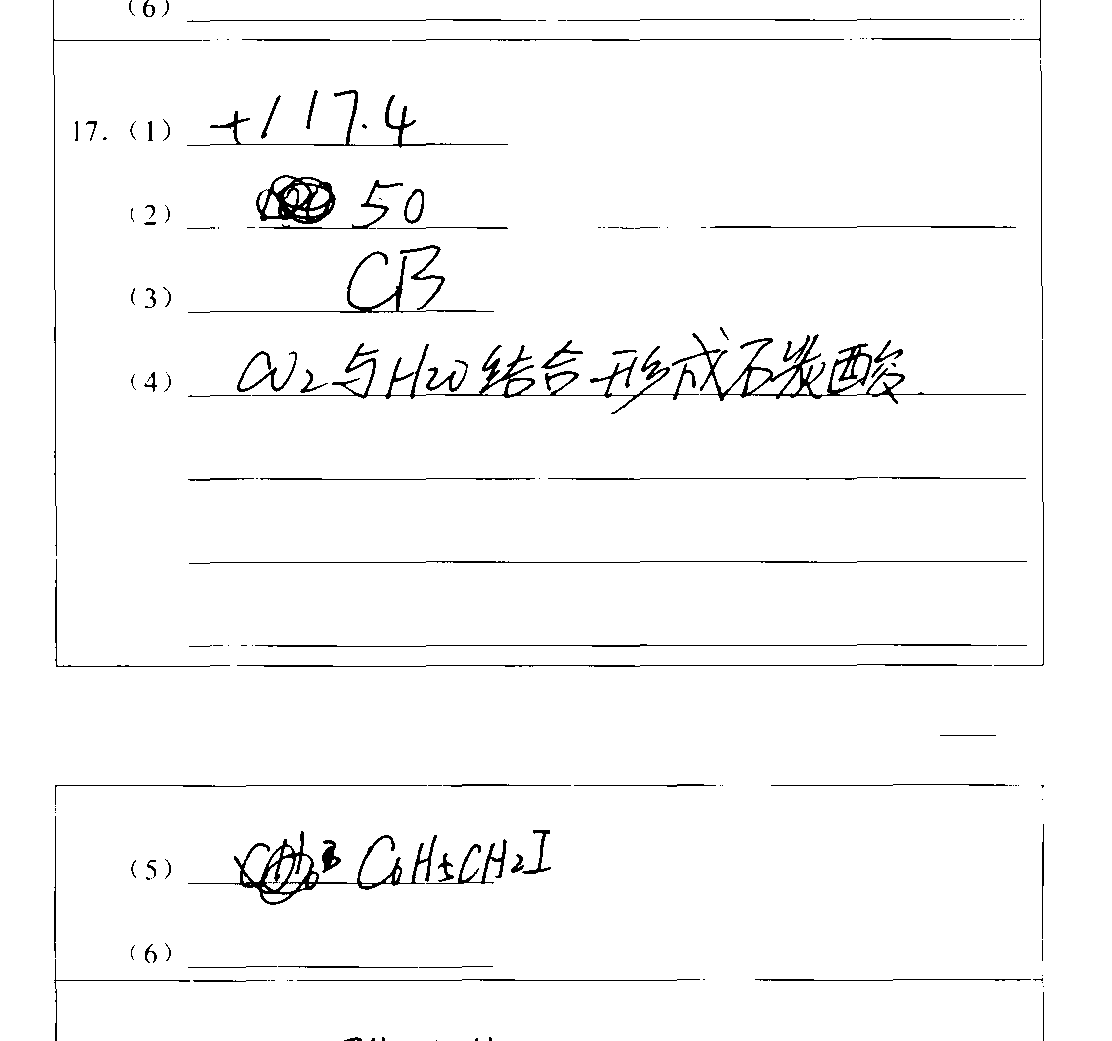 (6)
17. (1) +117.4
(2) 50
(3) CB
(4) CO2与H2O结合形成石炭酸.
(5) C6H5CH2I
(6)